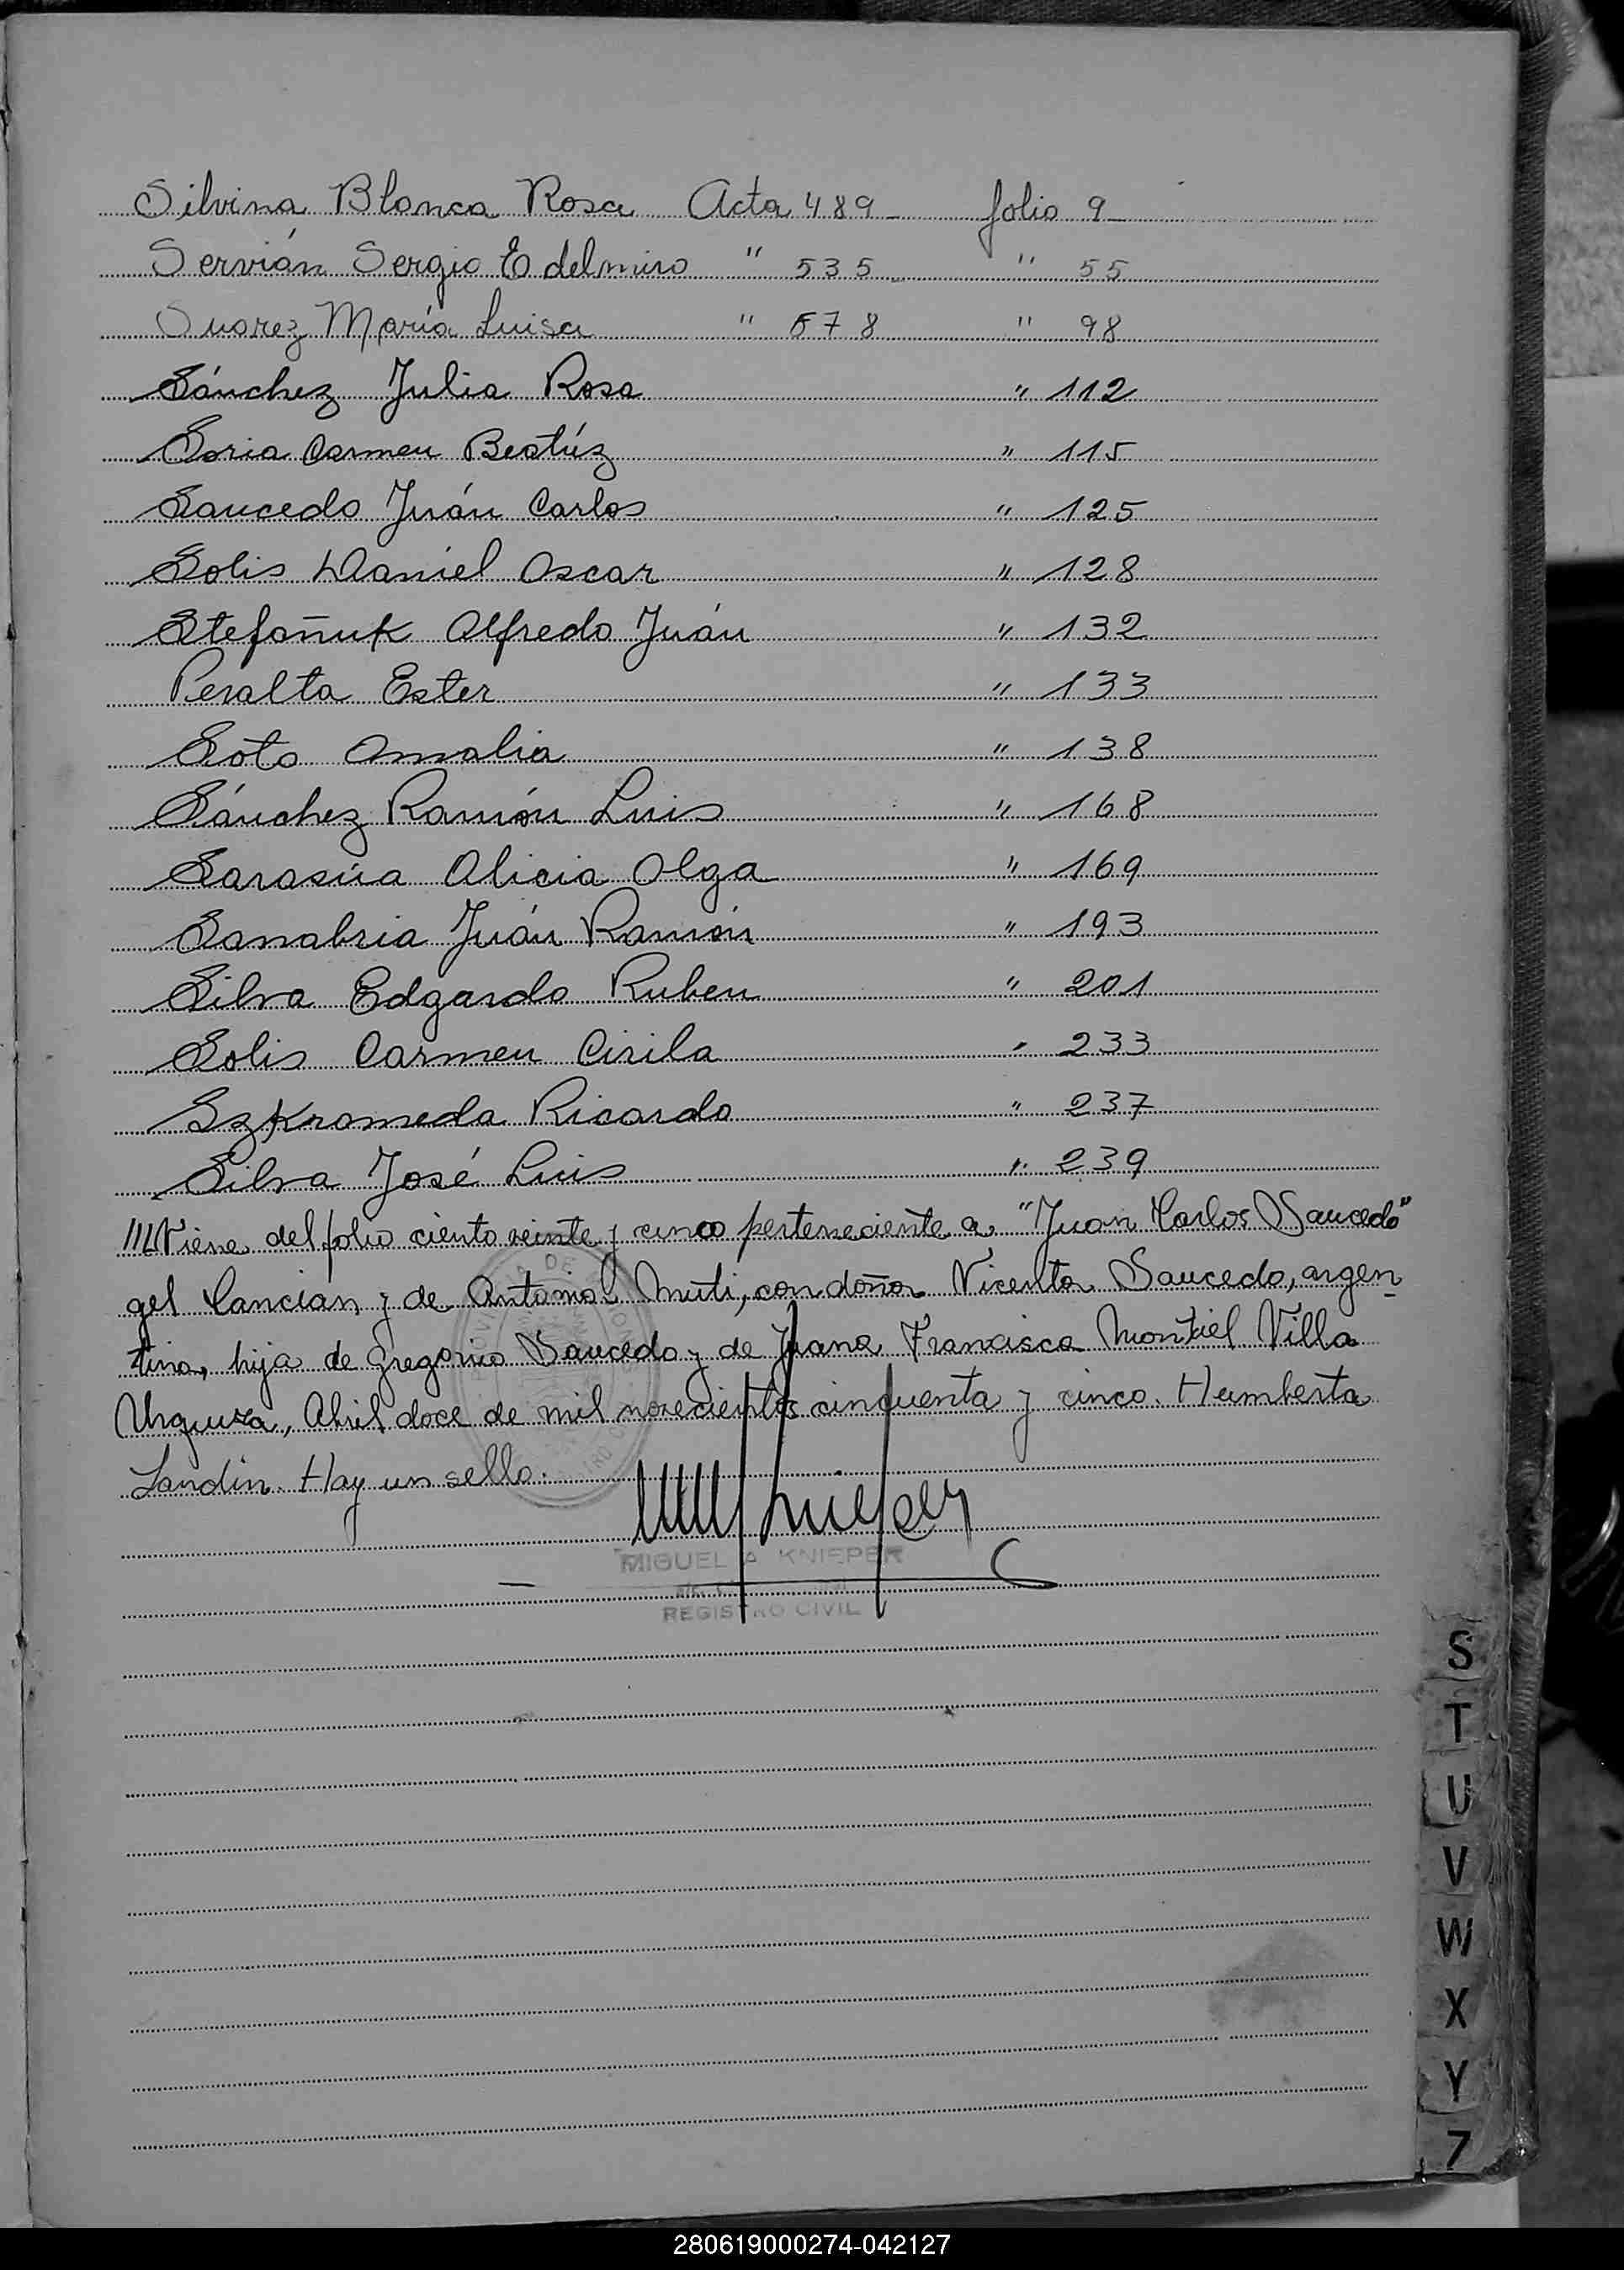 Silvina Blanca Rosa Acta 489 folio 9
Servián Sergio Edelmiro " 535 " 55
Suarez María Luisa " 578 " 98
Sánchez Julia Rosa " 112
Soria Carmen Beatríz " 115
Saucedo Juán Carlos " 125
Solis Daniel Oscar " 128
Stefañuk Alfredo Juán " 132
Peralta Ester " 133
Soto Amalia " 138
Sánchez Ramón Luis " 168
Sarasúa Alicia Olga " 169
Sanabria Juán Ramón " 193
Silva Edgardo Ruben " 201
Solis Carmen Cirila " 233
Szkromeda Ricardo " 237
Silva José Luis " 239
///Viene del folio ciento veinte y cinco perteneciente a "Juan Carlos Saucedo"
gel Cancián y de Antonia Muti, con doña Vicenta Saucedo, argen-
tina, hija de Gregorio Saucedo y de Juana Francisca Montiel Villa
Urquiza, Abril doce de mil novecientos cincuenta y cinco. Humberta
Landin. Hay un sello.
MIGUEL A KNIEPER
REGISTRO CIVIL
S
T
U
V
W
X
Y
Z
280619000274-042127